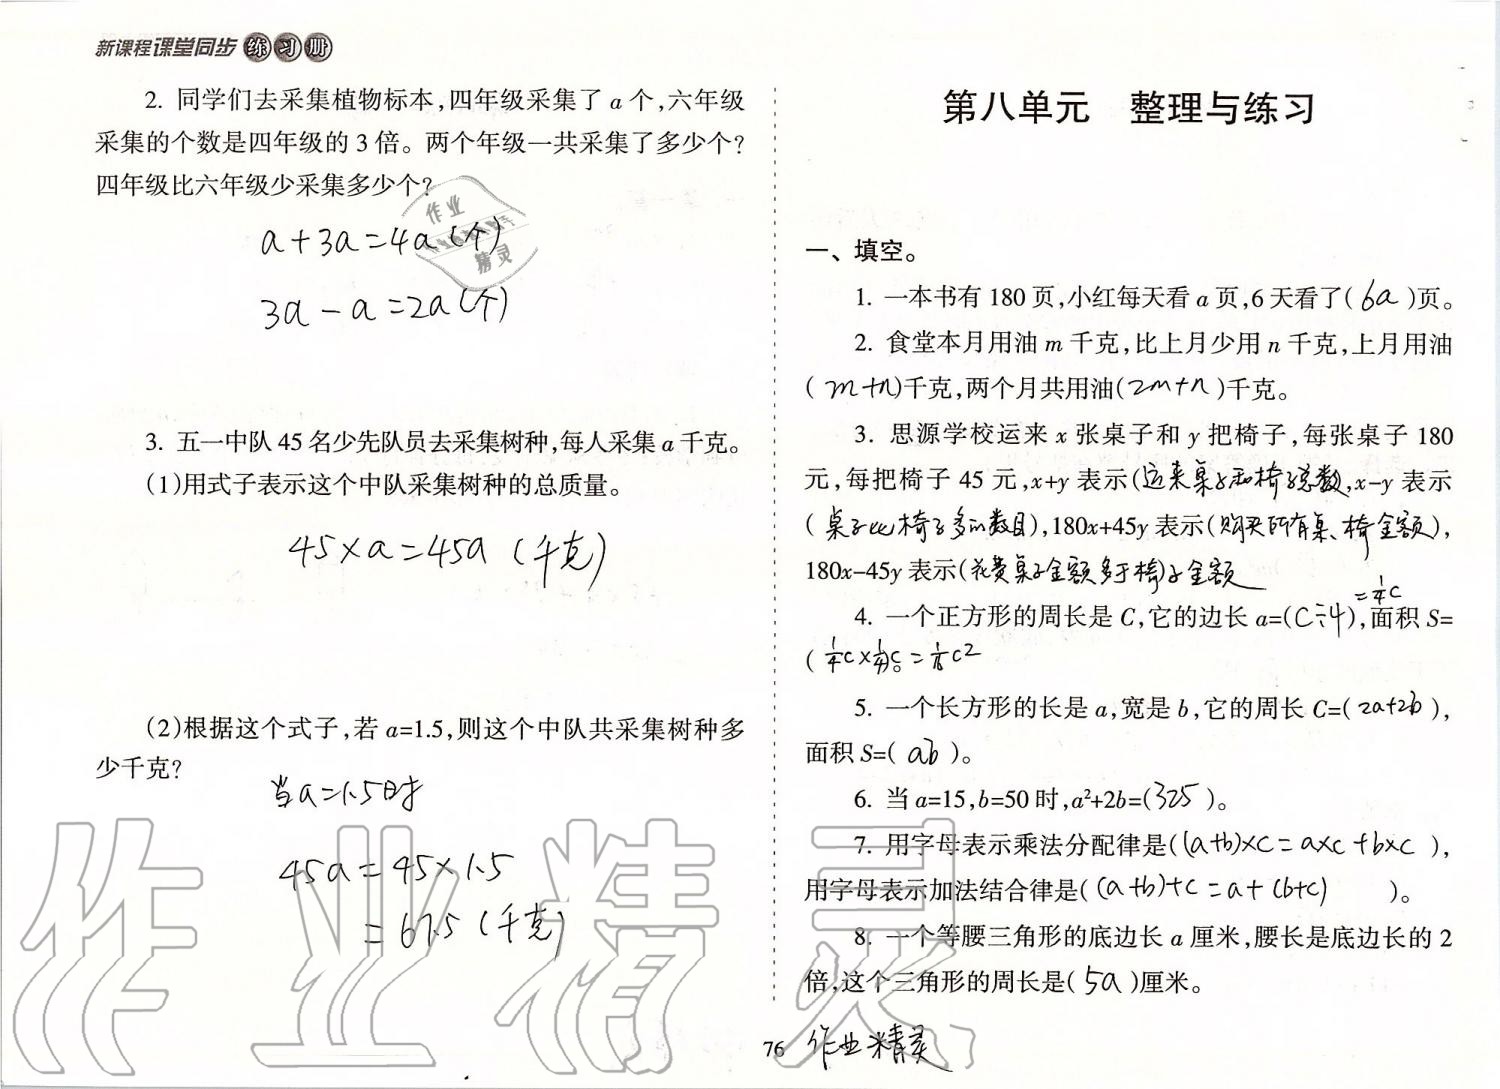 新课程课堂同步练习册
2. 同学们去采集植物标本,四年级采集了 a 个,六年级
采集的个数是四年级的 3 倍。两个年级一共采集了多少个?
四年级比六年级少采集多少个?
作业
精灵
a+3a=4a(个)
3a-a=2a(个)
3. 五一中队 45 名少先队员去采集树种,每人采集 a 千克。
(1)用式子表示这个中队采集树种的总质量。
45×a=45a (千克)
(2)根据这个式子,若 a=1.5,则这个中队共采集树种多
少千克?
当a=1.5时
45a=45×1.5
=67.5(千克)
第八单元 整理与练习
一、填空。
1. 一本书有 180 页,小红每天看 a 页,6 天看了( 6a )页。
2. 食堂本月用油 m 千克,比上月少用 n 千克,上月用油
( m+n)千克,两个月共用油(2m+n )千克。
3. 思源学校运来 x 张桌子和 y 把椅子,每张桌子 180
元,每把椅子 45 元,x+y 表示(运来桌子和椅子总数,x-y 表示
( 桌子比椅子多的数目),180x+45y 表示(购买所有桌、椅金额),
180x-45y 表示(花费桌子金额多于椅子金额
4. 一个正方形的周长是 C,它的边长 a=(C÷4)=¼C,面积 S=
( ¼C×¼C)。=1/16C²
5. 一个长方形的长是 a,宽是 b,它的周长 C=( 2a+2b ),
面积 S=( ab )。
6. 当 a=15,b=50 时,a²+2b=(325 )。
7. 用字母表示乘法分配律是((a+b)×c=a×c+b×c ),
用字母表示加法结合律是((a+b)+c=a+(b+c) )。
8. 一个等腰三角形的底边长 a 厘米,腰长是底边长的 2
倍,这个三角形的周长是( 5a )厘米。
作业精灵
76 作业精灵